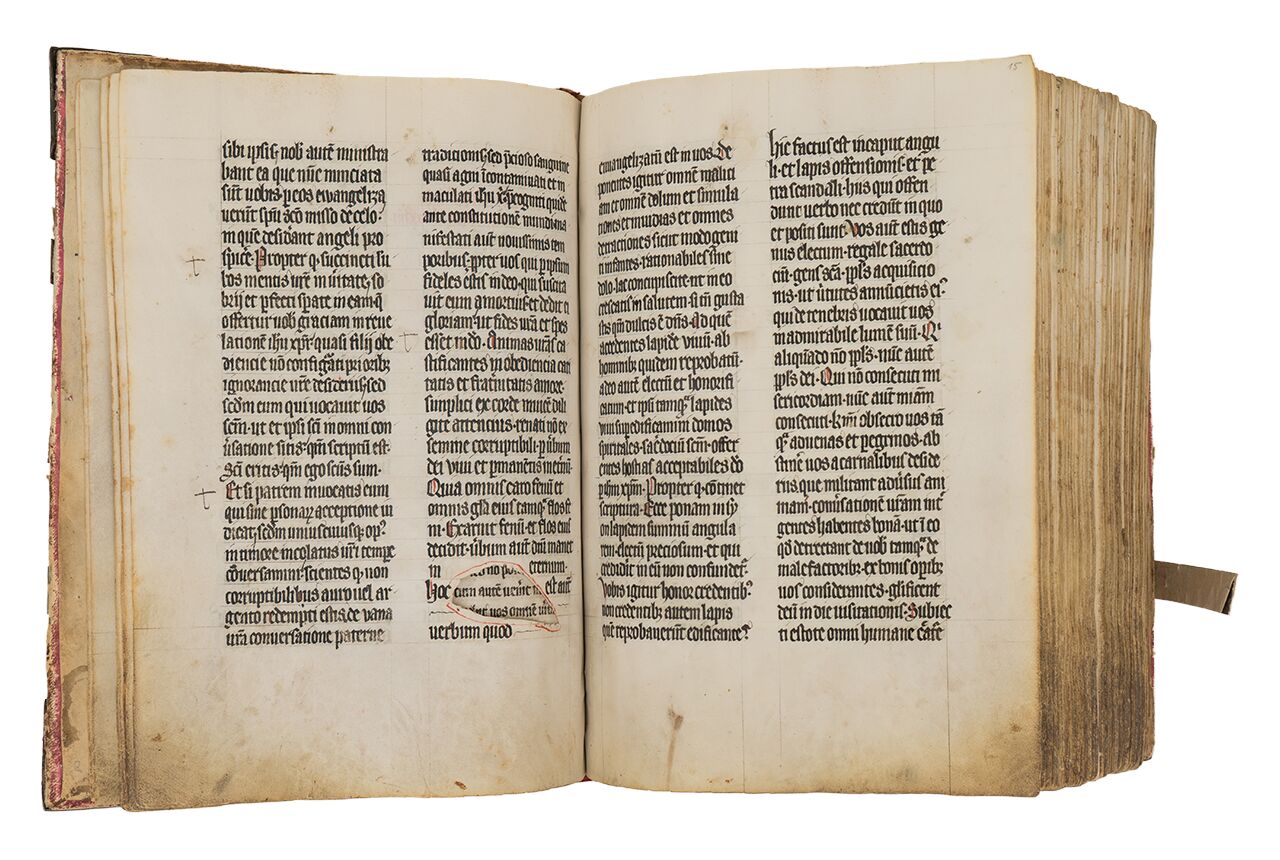 sibi ipsis nob aute ministra
bant ea que nunc nunciata
sūt uobis p̲ eos ewangeliza
uerūt spū sco misso de celo
in que desidant angeli pro
spice. Propter q. succincti lū
bos mentis ure in uitate, so
brij et pfecti spate in eam q̄
offertur uob graciam in reue
lationē ihu xpi quasi filij obe
diencie nō configati prioribz
ignorancie ure desideriis sed
scdm eum qui uocauit uos
scm. ut et ipsi sci in omni con
usatione sitis. qm scriptū est.
Sci eritis. qm ego scūs sum.
Et si patrem inuocatis eum
qui sine psonaꝝ acceptione iu
dicat, scdm uniuscuiusq; op9
in timore incolatus uri tempe
cōuersamini. scientes q. non
corruptibilibus auro uel ar
gento redempti estis de uana
ura conuersatione paterne
traditionis, sed p̄cioso sanguine
quasi agni icontaminati et in
maculati ihu xp̄i pcogniti quidē
ante constitutionē mundi ma
nifestati aut nouissimis tem
poribus. ppter uos qui p ipsum
fideles estis in deo. qui suscita
uit eum a mortuis. et dedit ei
gloriam. ut fides ura et spes
esset in deo. Animas uras ca
stificantes in obediencia cari
tatis et fratnitatis amore
simplici ex corde inuicē dili
gite attencius. renati nō ex
semine corruptibili. p ūbum
dei uiui et pmanētis inetnū.
Quia omnis caro fenū et
omnis gla eius tamq̄ flos fe
ni. Exaruit fenū. et flos eius
decidit. ūbum aut dni manet
in eternum.
Hoc cum autē uenit est aut
uos omnē
uerbum quod
15
ewangelizatū est in uos. De
ponentes igitur omnē malici
am et omnē dolum et simula
tiones et inuidias et omnes
detractiones sicut modo geni
ti infantes. rationabile sine
dolo lac concupiscite. ut in eo
crescatis in salutem. si tn gusta
stis qm dulcis ē dns. Ad quē
accedentes lapidē viuū. ab
hominibz quidem reprobatū.
a deo autē electū et honorifi
catum. et ipsi tamq̄ lapides
viui supedificamini domos
spiritales. sacdociū scm. offer
entes hostias acceptabiles do
p ihm xpm. Propter q. cōtinet
scriptura. Ecce ponam in sy
on lapidem summū angula
rem. electū preciosum. et qui
crediderit in eū non confundet.
Vobis igitur honor credentibz.
non credentibz autem lapis
quē reprobauerūt edificante?
hic factus est in caput angu
li. et lapis offensionis. et pe
tra scandali. hiis qui offen
dunt uerbo nec credūt in quo
et positi sunt. Vos aut estis ge
nus electum. regale sacerdo
ciū. gens scā. ppls acquisicio
nis. ut uirtutes annūcietis ei9
qui de tenebris uocauit uos
in admirabile lumē suū. Q
aliquādo nō ppls. nūc autē
ppls dei. Qui nō consecuti mi
sericordiam. nūc aut miam
consecuti. Kmi obsecro uos tā
q̄ aduenas et pegrinos. ab
stinē uos a carnalibus deside
riis. que militant adūsus ani
mam. conūsationē uram int
gentes habentes bonā. ut ī eo
qd detrectant de uob tamq̄ de
malefactoribz. ex bonis opibz
uos considerantes. glificent
deū in die uisitationis. Subiec
ti estote omni humane cātē